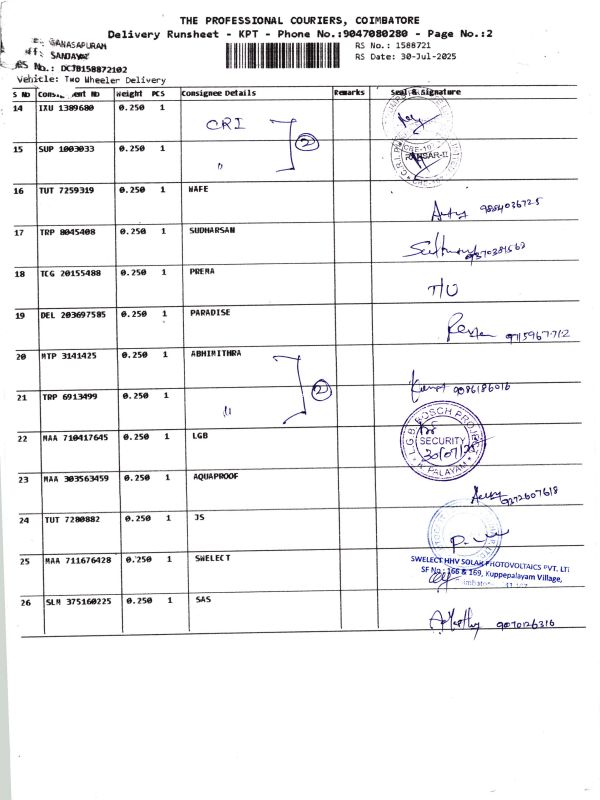 THE PROFESSIONAL COURIERS, COIMBATORE
Delivery Runsheet - KPT - Phone No.:9047080280 - Page No.:2
GANASAPURAM
RS No.: 1588721
SANJAY
RS Date: 30-Jul-2025
RS No.: DCJB158872102
Vehicle: Two Wheeler Delivery
S No Consignment No Weight PCS Consignee Details Remarks Seal & Signature
14 IXU 1389680 0.250 1 CRI
15 SUP 1003033 0.250 1 " 2
16 TUT 7259319 0.250 1 WAFE
17 TRP 8045408 0.250 1 SUDHARSAN
18 TCG 20155488 0.250 1 PREMA T/U
19 DEL 203697585 0.250 1 PARADISE 9715967712
20 MTP 3141425 0.250 1 ABHIMITHRA 9086186016
21 TRP 6913499 0.250 1 " 2
22 MAA 710417645 0.250 1 LGB L.G.B BOSCH PROJE SECURITY 30/07/25 K. PALAYAM
23 MAA 303563459 0.250 1 AQUAPROOF 9272607618
24 TUT 7280882 0.250 1 JS
25 MAA 711676428 0.250 1 SWELECT SWELECT HHV SOLAR PHOTOVOLTAICS PVT. LTD
SF No : 166 & 169, Kuppepalayam Village,
26 SLM 375160225 0.250 1 SAS 9070126316